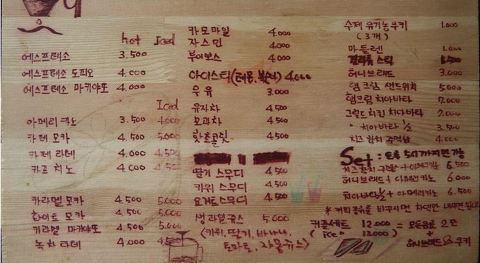 hot Iced
에스프레소 3.500
에스프레소 도피오 4.000
에스프레소 마키아또 4.000
Iced
아메리카노 3.500 4.000
카페 모카 4.500 5.000
카페 라떼 4.000 4.500
카푸치노 4.000
카라멜 모카 4.500 5.000
화이트 모카 4.500 5.000
카라멜 마키아또 4.500 5.000
녹차 라떼 4.000 4.500
카모마일 4.000
자스민 4.000
루이보스 4.000
아이스티(레몬, 복숭아) 4.000
우유 3.000
유자차 4.500
모과차 4.500
핫초콜릿 4.500
딸기 스무디 4.500
키위 스무디 4.500
요거트스무디 4.500
생과일쥬스 5.000
(키위, 딸기, 바나나,
토마토, 자몽쥬스)
수제 유기농쿠키 1.000
(3개)
마들렌 1.000
허니브레드 3.000
햄 크림 샌드위치 5.000
햄크림 치아바타 7.000
그릴드 치킨 치아바타 7.000
치아바타 ½ 3.500
Set :
6.500
허니브레드 + 아메리카노 6.500
치아바타½ + 아메리카노 6.500
커플세트 12.000
(ice 13.000)